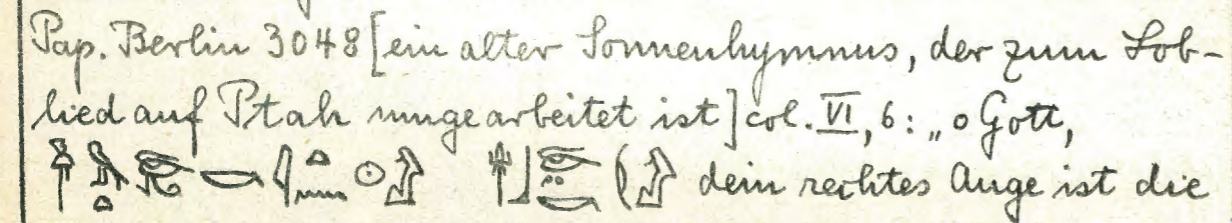 Pap. Berlin 3048 [ein alter Sonnenhymnus, der zum Lob-
lied auf Ptah umgearbeitet ist] col. VI, 6: „o Gott,
dein rechtes Auge ist die